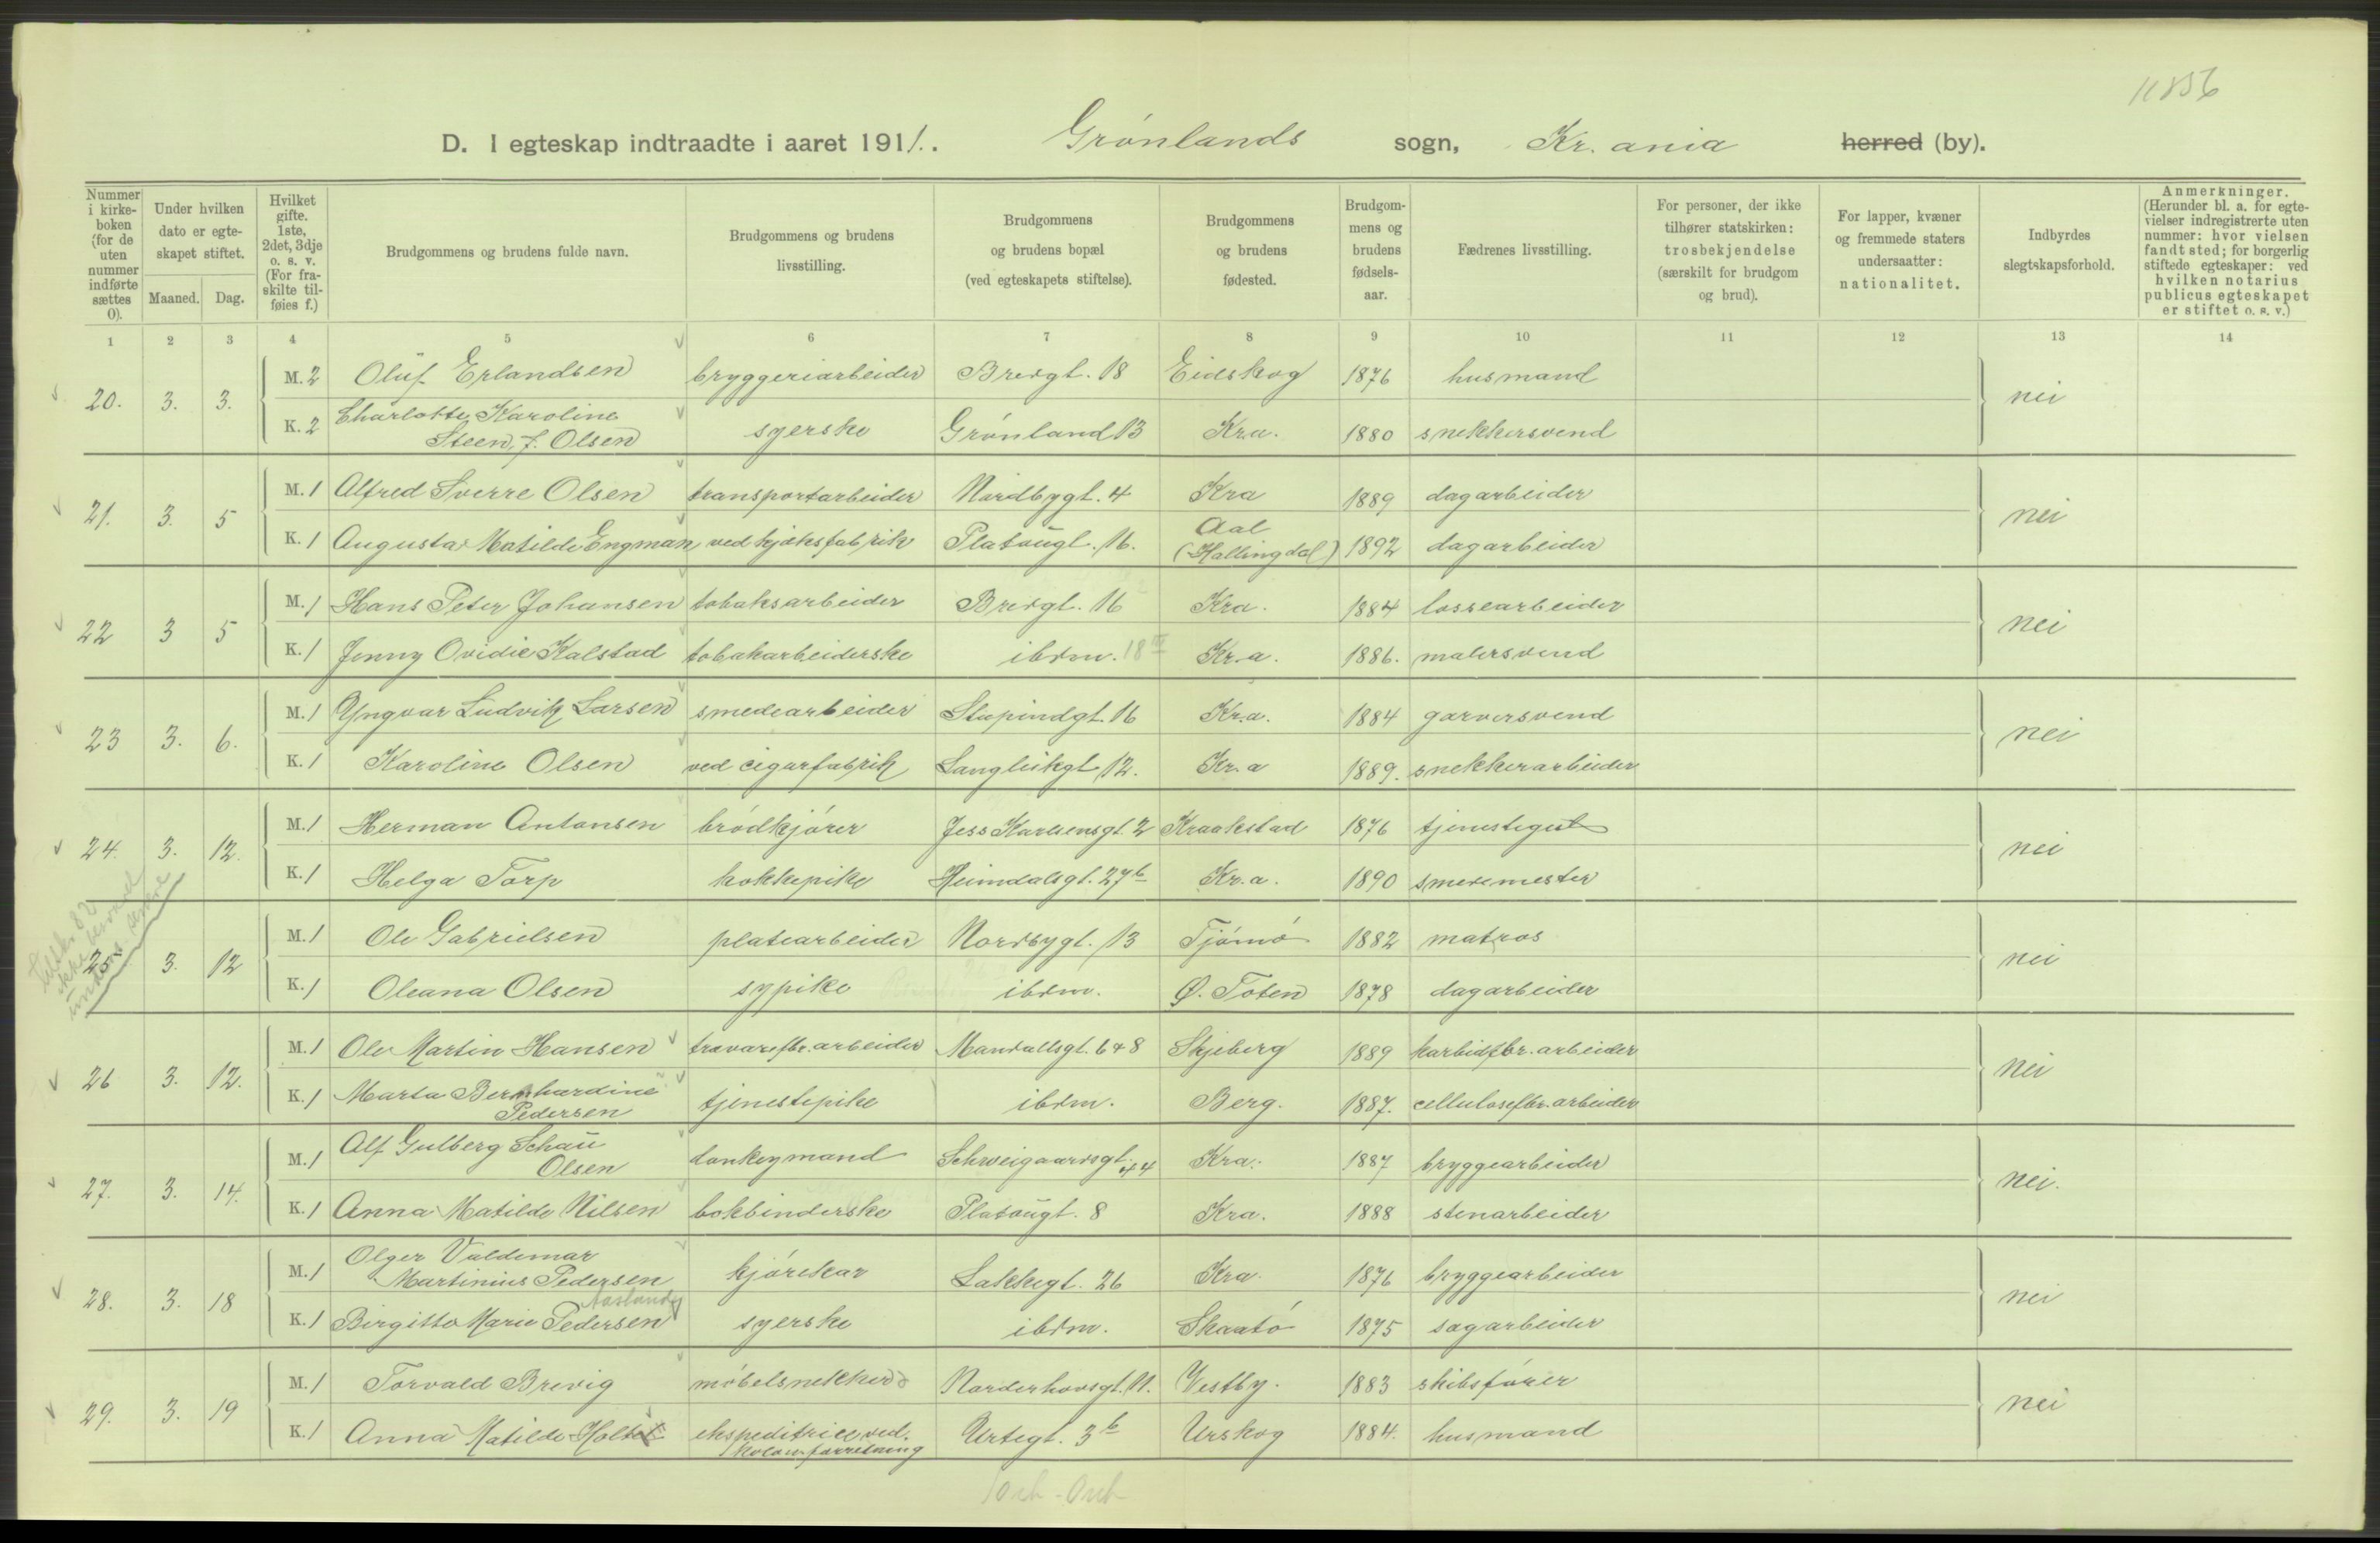 11856
D. I egteskap indtraadte i aaret 1911. Grønlands sogn, Kr.ania herred (by).
Nummer i kirkeboken (for de uten nummer indførte sættes 0).
Under hvilken dato er egteskapet stiftet.
Maaned. Dag.
Hvilket gifte. 1ste, 2det, 3dje o. s. v. (For fraskilte tilføies f.)
Brudgommens og brudens fulde navn.
Brudgommens og brudens livsstilling.
Brudgommens og brudens bopæl (ved egteskapets stiftelse).
Brudgommens og brudens fødested.
Brudgommens og brudens fødselsaar.
Fædrenes livsstilling.
For personer, der ikke tilhører statskirken: trosbekjendelse (særskilt for brudgom og brud).
For lapper, kvæner og fremmede staters undersaatter: nationalitet.
Indbyrdes slegtskapsforhold.
Anmerkninger. (Herunder bl. a. for egtevielser indregistrerte uten nummer: hvor vielsen fandt sted; for borgerlig stiftede egteskaper: ved hvilken notarius publicus egteskapet er stiftet o. s. v.)
1 2 3 4 5 6 7 8 9 10 11 12 13 14
20. 3. 3. M. 2 Oluf Erlandsen bryggeriarbeider Bredgt. 18 Eidskog 1876 husmand nei
K. 2 Charlotte Karoline Steen, f. Olsen syerske Grønland 13 Kr.a. 1880 snekkersvend
21. 3. 5 M. 1 Alfred Sverre Olsen transportarbeider Nordbygt. 4 Kra 1889 dagarbeider nei
K. 1 Augusta Matilde Engman ved kjæksfabrik Platougt. 16. Aal (Hallingdal) 1892 dagarbeider
22 3 5 M. 1 Hans Peter Johansen tobaksarbeider Bredgt. 16 Kra. 1884 lossearbeider nei
K. 1 Jenny Ovidie Kalstad tobakarbeiderske ibdm. 18 III Kr.a. 1886. malersvend
23 3. 6. M. 1 Yngvar Ludvik Larsen smedearbeider Stupindgt. 16 Kr.a. 1884 garversvend nei
K. 1 Karoline Olsen ved cigarfabrik Langleikgt 12. Kr.a 1889. snekkerarbeider
24. 3. 12. M. 1 Herman Antonsen brødkjører Jess Karlsensgt. 2 Kraakstad 1876 tjenestegut nei
K. 1 Helga Torp kokkepike Heimdalsgt. 27 b Kr.a. 1890 smedemester
25 3. 12 M. 1 Ole Gabrielsen platearbeider Nordbygt. 13 Tjømø 1882 matros nei
K. 1 Oleana Olsen sypike ibdm. Ø. Toten 1878 dagarbeider
26 3. 12. M. 1 Ole Martin Hansen travarefbr.arbeider Mandallsgt. 6 & 8 Skjeberg 1889 karbidfbr. arbeider nei
K. 1 Marta Bernhardine Pedersen tjenestepike ibdm. Berg. 1887. cellulosefbr.arbeider
27. 3. 14. M. 1 Alf Gulberg Schau Olsen donkeymand Schweigaardsgt. 44 Kra. 1887 bryggearbeider nei.
K. 1 Anna Matilde Nilsen bokbinderske Platougt. 8 Kra. 1888 stenarbeider
28. 3. 18 M. 1 Olger Valdemar Martinius Pedersen kjørekar Lakkegt. 26 Kra. 1876 bryggearbeider nei
Aaslund
K. 1 Birgitte Marie Pedersen syerske ibdm. Skaatø 1875 sagarbeider
29. 3. 19 M. 1 Torvald Brevig møbelsnekker Norderhovsgt. 11. Vestby. 1883 skibsfører nei
K. 1 Anna Matilde Holtet ekspeditrice ved. kolon.forretning Urtegt. 3 b Urskog 1884. husmand